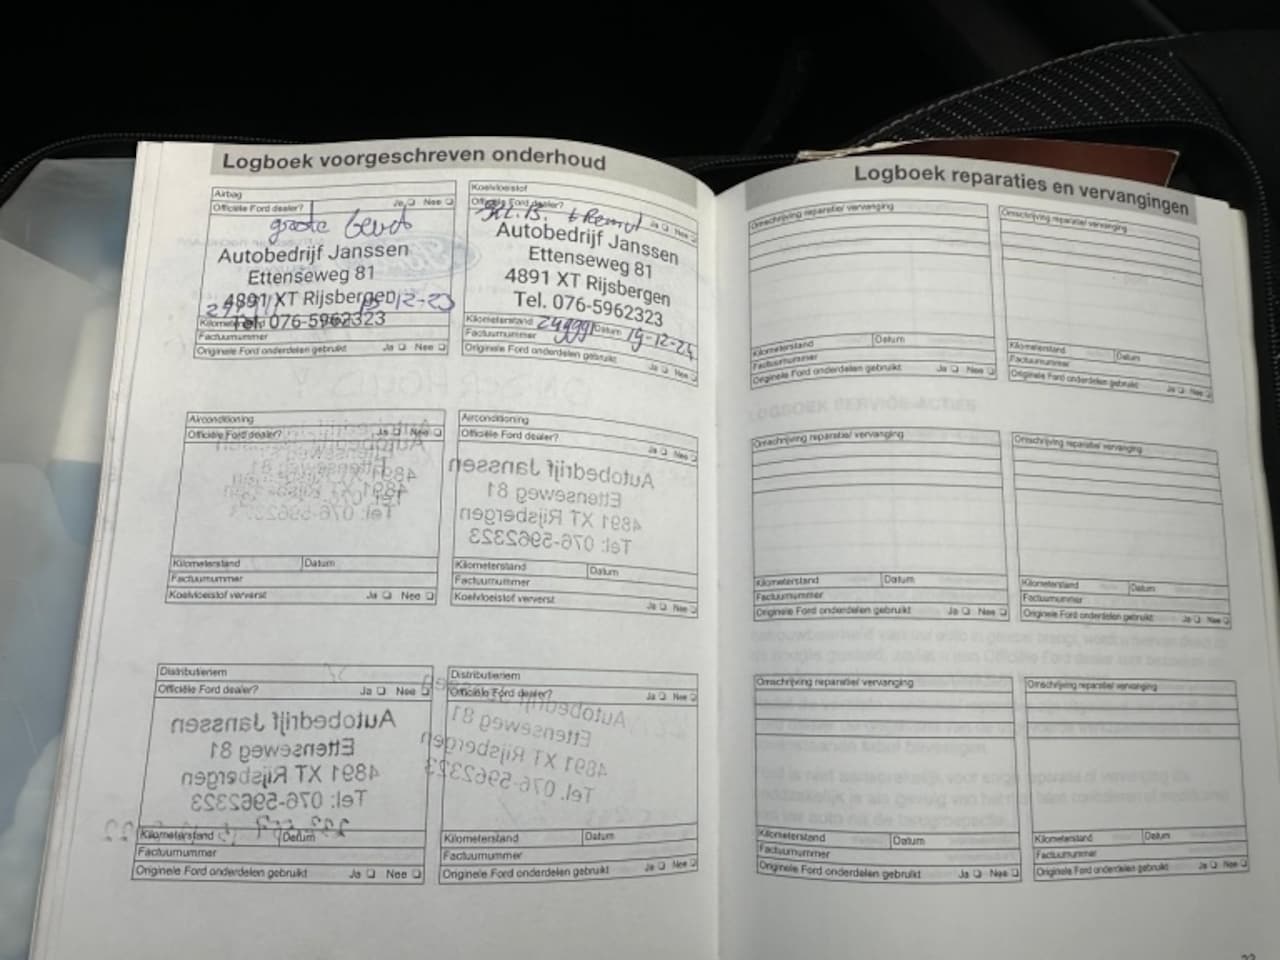 Logboek voorgeschreven onderhoud
Airbag
Officiële Ford dealer? Ja Nee
grote beurt
Autobedrijf Janssen
Ettenseweg 81
4891 XT Rijsbergen
12-23
Tel. 076-5962323
Kilometerstand
Factuurnummer
Originele Ford onderdelen gebruikt Ja Nee
Koelvloeistof
Officiële Ford dealer? Ja Nee
Kl. B. + Remvl
Autobedrijf Janssen
Ettenseweg 81
4891 XT Rijsbergen
Tel. 076-5962323
Kilometerstand Datum 19-12-24
Factuurnummer
Originele Ford onderdelen gebruikt
Ja Nee
Airconditioning
Officiële Ford dealer? Ja Nee
Kilometerstand Datum
Factuurnummer
Koelvloeistof ververst Ja Nee
Airconditioning
Officiële Ford dealer?
Ja Nee
Autobedrijf Janssen
Ettenseweg 81
4891 XT Rijsbergen
Tel: 076-5962323
Kilometerstand Datum
Factuurnummer
Koelvloeistof ververst
Ja Nee
Distributieriem
Officiële Ford dealer? Ja Nee
Autobedrijf Janssen
Ettenseweg 81
4891 XT Rijsbergen
Tel: 076-5962323
Kilometerstand Datum
Factuurnummer
Originele Ford onderdelen gebruikt Ja Nee
Distributieriem
Officiële Ford dealer? Ja Nee
Autobedrijf Janssen
Ettenseweg 81
4891 XT Rijsbergen
Tel. 076-5962323
Kilometerstand Datum
Factuurnummer
Originele Ford onderdelen gebruikt Ja Nee
Logboek reparaties en vervangingen
Omschrijving reparatie/ vervanging
Kilometerstand Datum
Factuurnummer
Originele Ford onderdelen gebruikt Ja Nee
Omschrijving reparatie/ vervanging
Kilometerstand Datum
Factuurnummer
Originele Ford onderdelen gebruikt Ja Nee
LOGBOEK SERVICE-ACTIES
Omschrijving reparatie/ vervanging
Kilometerstand Datum
Factuurnummer
Originele Ford onderdelen gebruikt Ja Nee
Omschrijving reparatie/ vervanging
Kilometerstand Datum
Factuurnummer
Originele Ford onderdelen gebruikt Ja Nee
Omschrijving reparatie/ vervanging
Kilometerstand Datum
Factuurnummer
Originele Ford onderdelen gebruikt Ja Nee
Omschrijving reparatie/ vervanging
Kilometerstand Datum
Factuurnummer
Originele Ford onderdelen gebruikt Ja Nee